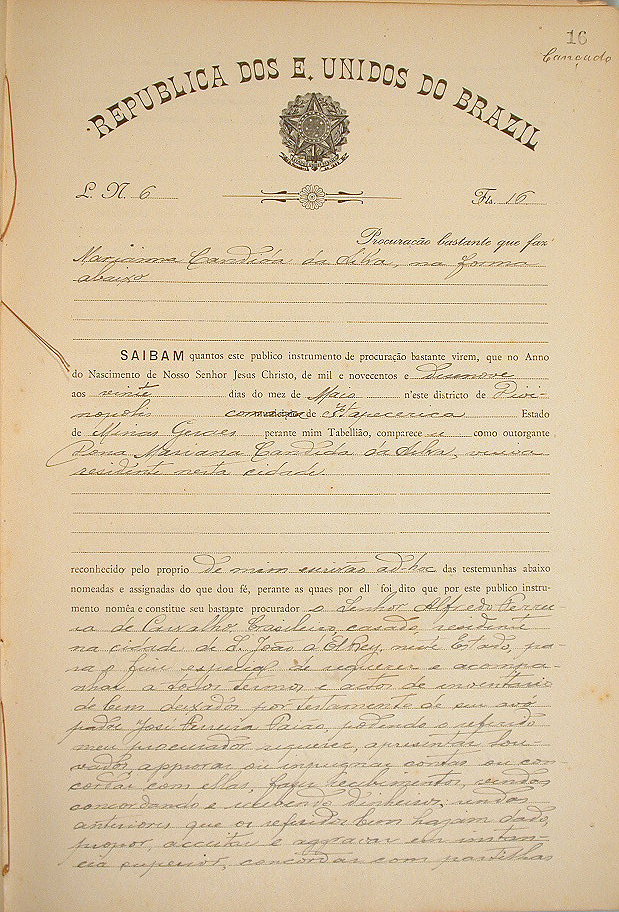 16
Cançado
REPUBLICA DOS E. UNIDOS DO BRAZIL
L. N. 6
Fls. 16
Procuração bastante que faz
Marianna Candida da Silva, na forma
abaixo
SAIBAM quantos este publico instrumento de procuração bastante virem, que no Anno
do Nascimento de Nosso Senhor Jesus Christo, de mil e novecentos e desenove
aos vinte dias do mez de Maio n'este districto de Divi-
nopolis de Itapecerica Estado
de Minas Geraes perante mim Tabellião, comparece u como outorgante
Dona Mariana Candida da Silva, viuva
residente nesta cidade
reconhecido pelo proprio de mim escrivão ad-hoc das testemunhas abaixo
nomeadas e assignadas do que dou fé, perante as quaes por ell foi dito que por este publico instru-
mento nomêa e constitue seu bastante procurador o Senhor Alfredo Ferrei-
ra de Carvalho, brasileiro, casado, residente
na cidade de S. João d'El Rey, neste Estado, pa-
ra o fim especial de requerer e acompa-
nhar a todos termos e actos de inventario
de bem deixados por testamento de seu avo
padre José Ferreira Paião, podendo o referido
meu procurador requerer, apresentar lou-
vados, approvar ou impugnar contas ou con-
cordar com ellas, fazer recebimentos,
concordando e recebendo dinheiros, rendas
anteriores que os referidos bem hajam dado,
propor, acceitar e aggravar em instan-
cia superior, concordar com partilhas